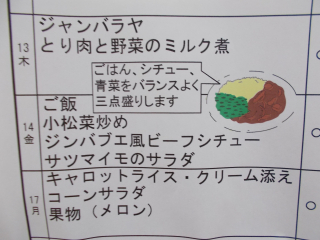 13
木
ジャンバラヤ
とり肉と野菜のミルク煮
ごはん、シチュー、
青菜をバランスよく
三点盛りします
14
金
ご飯
小松菜炒め
ジンバブエ風ビーフシチュー
サツマイモのサラダ
17
月
キャロットライス・クリーム添え
コーンサラダ
果物（メロン）
○